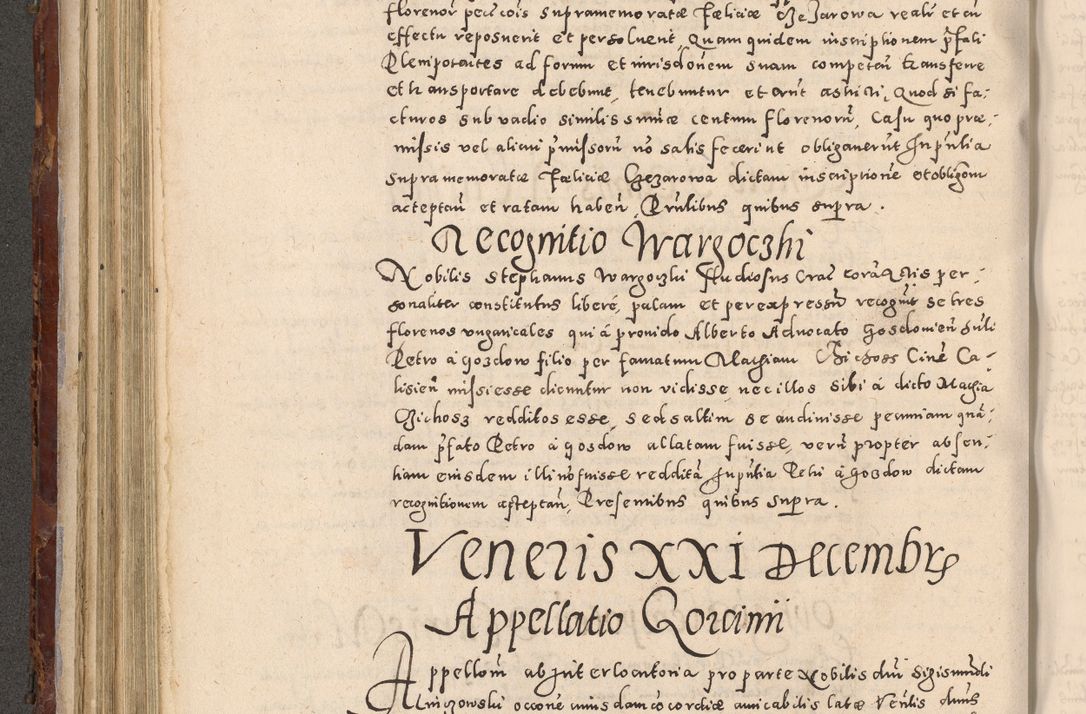 florenor pecu͞cois supramemoratæ Fœliciæ Czezarowa reali et cu͞
effectu reposuerit et persoluent, Quam quidem inscriptionem p͞fati
Plenipotentes ad forum et iurisdo͞nem suam competen͞ transferre
et transportare debebunt, tenebuntur et erunt astricti, Quod si fa-
cturos sub vadio similis summæ centum florenoru͞, Casu quo præ-
missis vel alicui p͞missoru͞ no͞ satisfecerint obligauerunt Inp͞ntia
supra memoratæ Fœliciæ Czezarowa dictam inscriptione͞ et obligo͞m
acceptan͞ et ratam haben͞, Præ͞ntibus quibus supra.
Recognitio Wargoczki
Nobilis Stephanus Wargoczki studiosus Crac͞ cora͞ Actis per-
sonaliter constitutus liberé, palam et per expressu͞ recognit se tres
florenos vngaricales qui á prouido Alberto Aduocato Gosdouien͞
Petro á gozdow filio per famatum Mathiam Czichosz Cine͞ Ca-
lisien͞ missi esse dicuntur non vidisse nec illos sibi á dicto Mathia
Czichosz redditos esse, sed saltim se audiuisse pecuniam qua͞-
dam p͞fato Petro á gozdow allatam fuisse, veru͞ propter absen-
tiam eiusdem illi no͞ fuisse reddita͞ Inp͞ntia Petri á gozdow dictam
recognitionem acceptan͞, Presentibus quibus Supra.
Veneris XXI Decembris
Appellatio Gorcimii
Appellom͞ ab Interlocutoria pro parte Nobilis d͞ni Sigismundi
occo͞ne cuiusdam co͞cordiæ amicabilis latæ Ven͞lis d͞nus